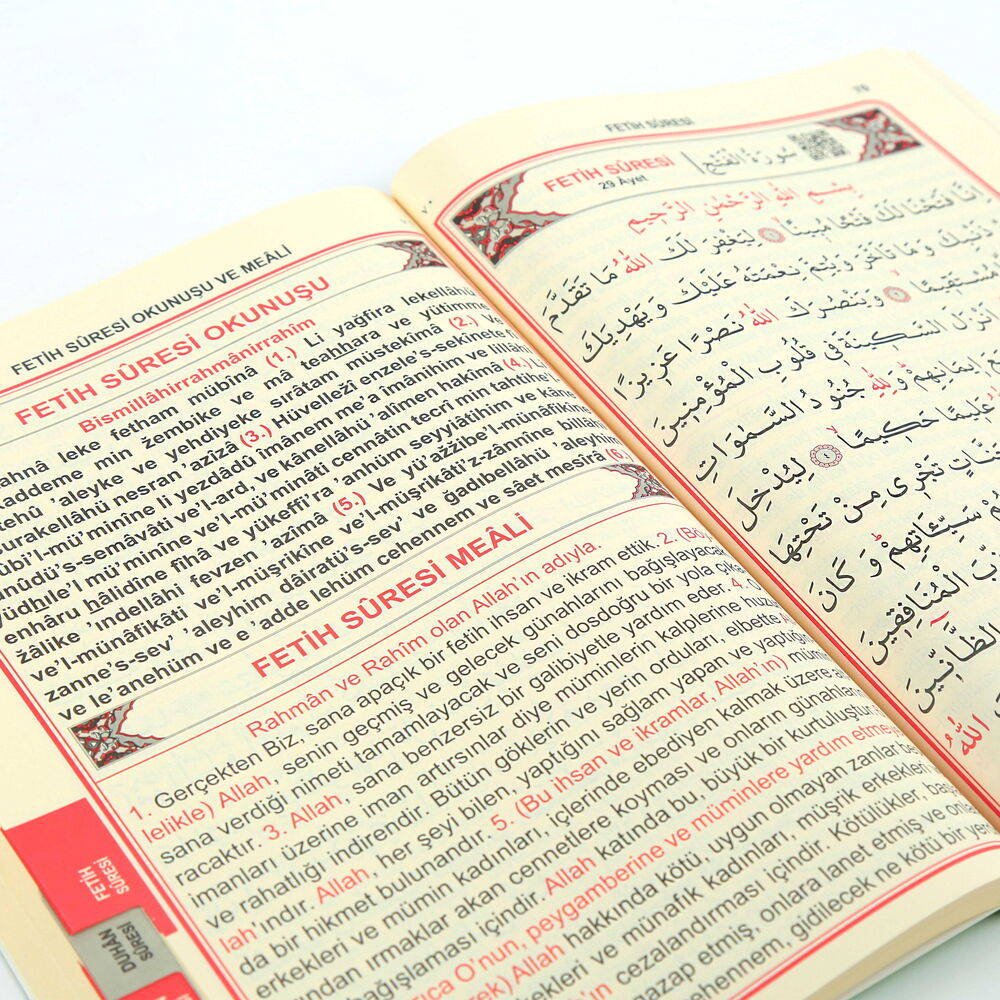 FETİH SÛRESİ OKUNUŞU VE MEÂLİ
FETİH SÛRESİ OKUNUŞU
Bismillâhirrahmânirrahîm
leke fetham mübînâ (1.) Li yağfira lekellâhü
min zembike ve mâ teahhara ve yütimme
'aleyke ve yehdiyeke sırâtam müstekîmâ (2.) Ve
nesran 'azîzâ (3.) Hüvellezî enzele's-sekînete
li yezdâdû îmânem me'a îmânihim ve lillâhi
ve'l-ard, ve kânellâhü 'alîmen hakîmâ (4.)
mü'minîne ve'l-mü'minâti cennâtin tecrî min tahtihe'l
enhâru hâlidîne fîhâ ve yükeffi'ra 'anhüm seyyiâtihim ve kâne
žâlike 'indellâhi fevzen 'azîmâ (5.) Ve yü'ažžibe'l-münâfikîne
ve'l-münâfikâti ve'l-müşrikîne ve'l-müşrikâti'z-zânnîne billâhi
zanne's-sev' 'aleyhim dâiratü's-sev' ve ğadibellâhü 'aleyhim
ve le'anehüm ve e'adde lehüm cehenneme ve sâet mesîrâ (6.)
FETİH SÛRESİ MEÂLİ
Rahmân ve Rahîm olan Allah'ın adıyla.
1. Gerçekten Biz, sana apaçık bir fetih ihsan ve ikram ettik. 2.
lelikle) Allah, senin geçmiş ve gelecek günahlarını bağışlayacak
sana verdiği nimeti tamamlayacak ve seni dosdoğru bir yola
racaktır. 3. Allah, sana benzersiz bir galibiyetle yardım eder. 4.
imanları üzerine iman artırsınlar diye müminlerin kalplerine
ve rahatlığı indirendir. Bütün göklerin ve yerin orduları, elbette
lah'ındır. Allah, her şeyi bilen, yaptığını sağlam yapan ve yaptığın
da bir hikmet bulunandır. 5. (Bu ihsan ve ikramlar, Allah'ın)
erkekleri ve mümin kadınları, içlerinde ebediyen kalmak üzere
ından ırmaklar akan cennetlere koyması ve onların günahların
bağışlaması içindir. Allah katında bu, büyük bir kurtuluştur.
O'nun, peygamberine ve müminlere yardım etmey
Allah hakkında kötü, uygun olmayan zanlar
ve münafık kadınları, müşrik erkekleri
cezalandırması içindir. Kötülükler,
gazap etmiş, onlara lanet etmiş ve
gidilecek ne kötü bir
FETİH
SÛRESİ
DUHAN
SÛRESİ
FETİH SÛRESİ
FETİH SÛRESİ
29 Âyet
سُورَةُ الْفَتْحِ
بِسْمِ اللهِ الرَّحْمٰنِ الرَّحِيمِ
اِنَّا فَتَحْنَا لَكَ فَتْحًا مُبِينًا ﴿١﴾ لِيَغْفِرَ لَكَ اللهُ مَا تَقَدَّمَ
ذَنْبِكَ وَمَا تَاَخَّرَ وَيُتِمَّ نِعْمَتَهُ عَلَيْكَ وَيَهْدِيَكَ
مُسْتَقِيمًا ﴿٢﴾ وَيَنْصُرَكَ اللهُ نَصْرًا عَزِيزًا
اَنْزَلَ السَّكِينَةَ فِى قُلُوبِ الْمُؤْمِنِينَ
اِيمَانِهِمْ وَلِلّٰهِ جُنُودُ السَّمٰوَاتِ
عَلِيمًا حَكِيمًا ﴿٤﴾ لِيُدْخِلَ
تَجْرِى مِنْ تَحْتِهَا
سَيِّئَاتِهِمْ وَكَانَ
الْمُنَافِقِينَ
الظَّانِّينَ
اللهُ